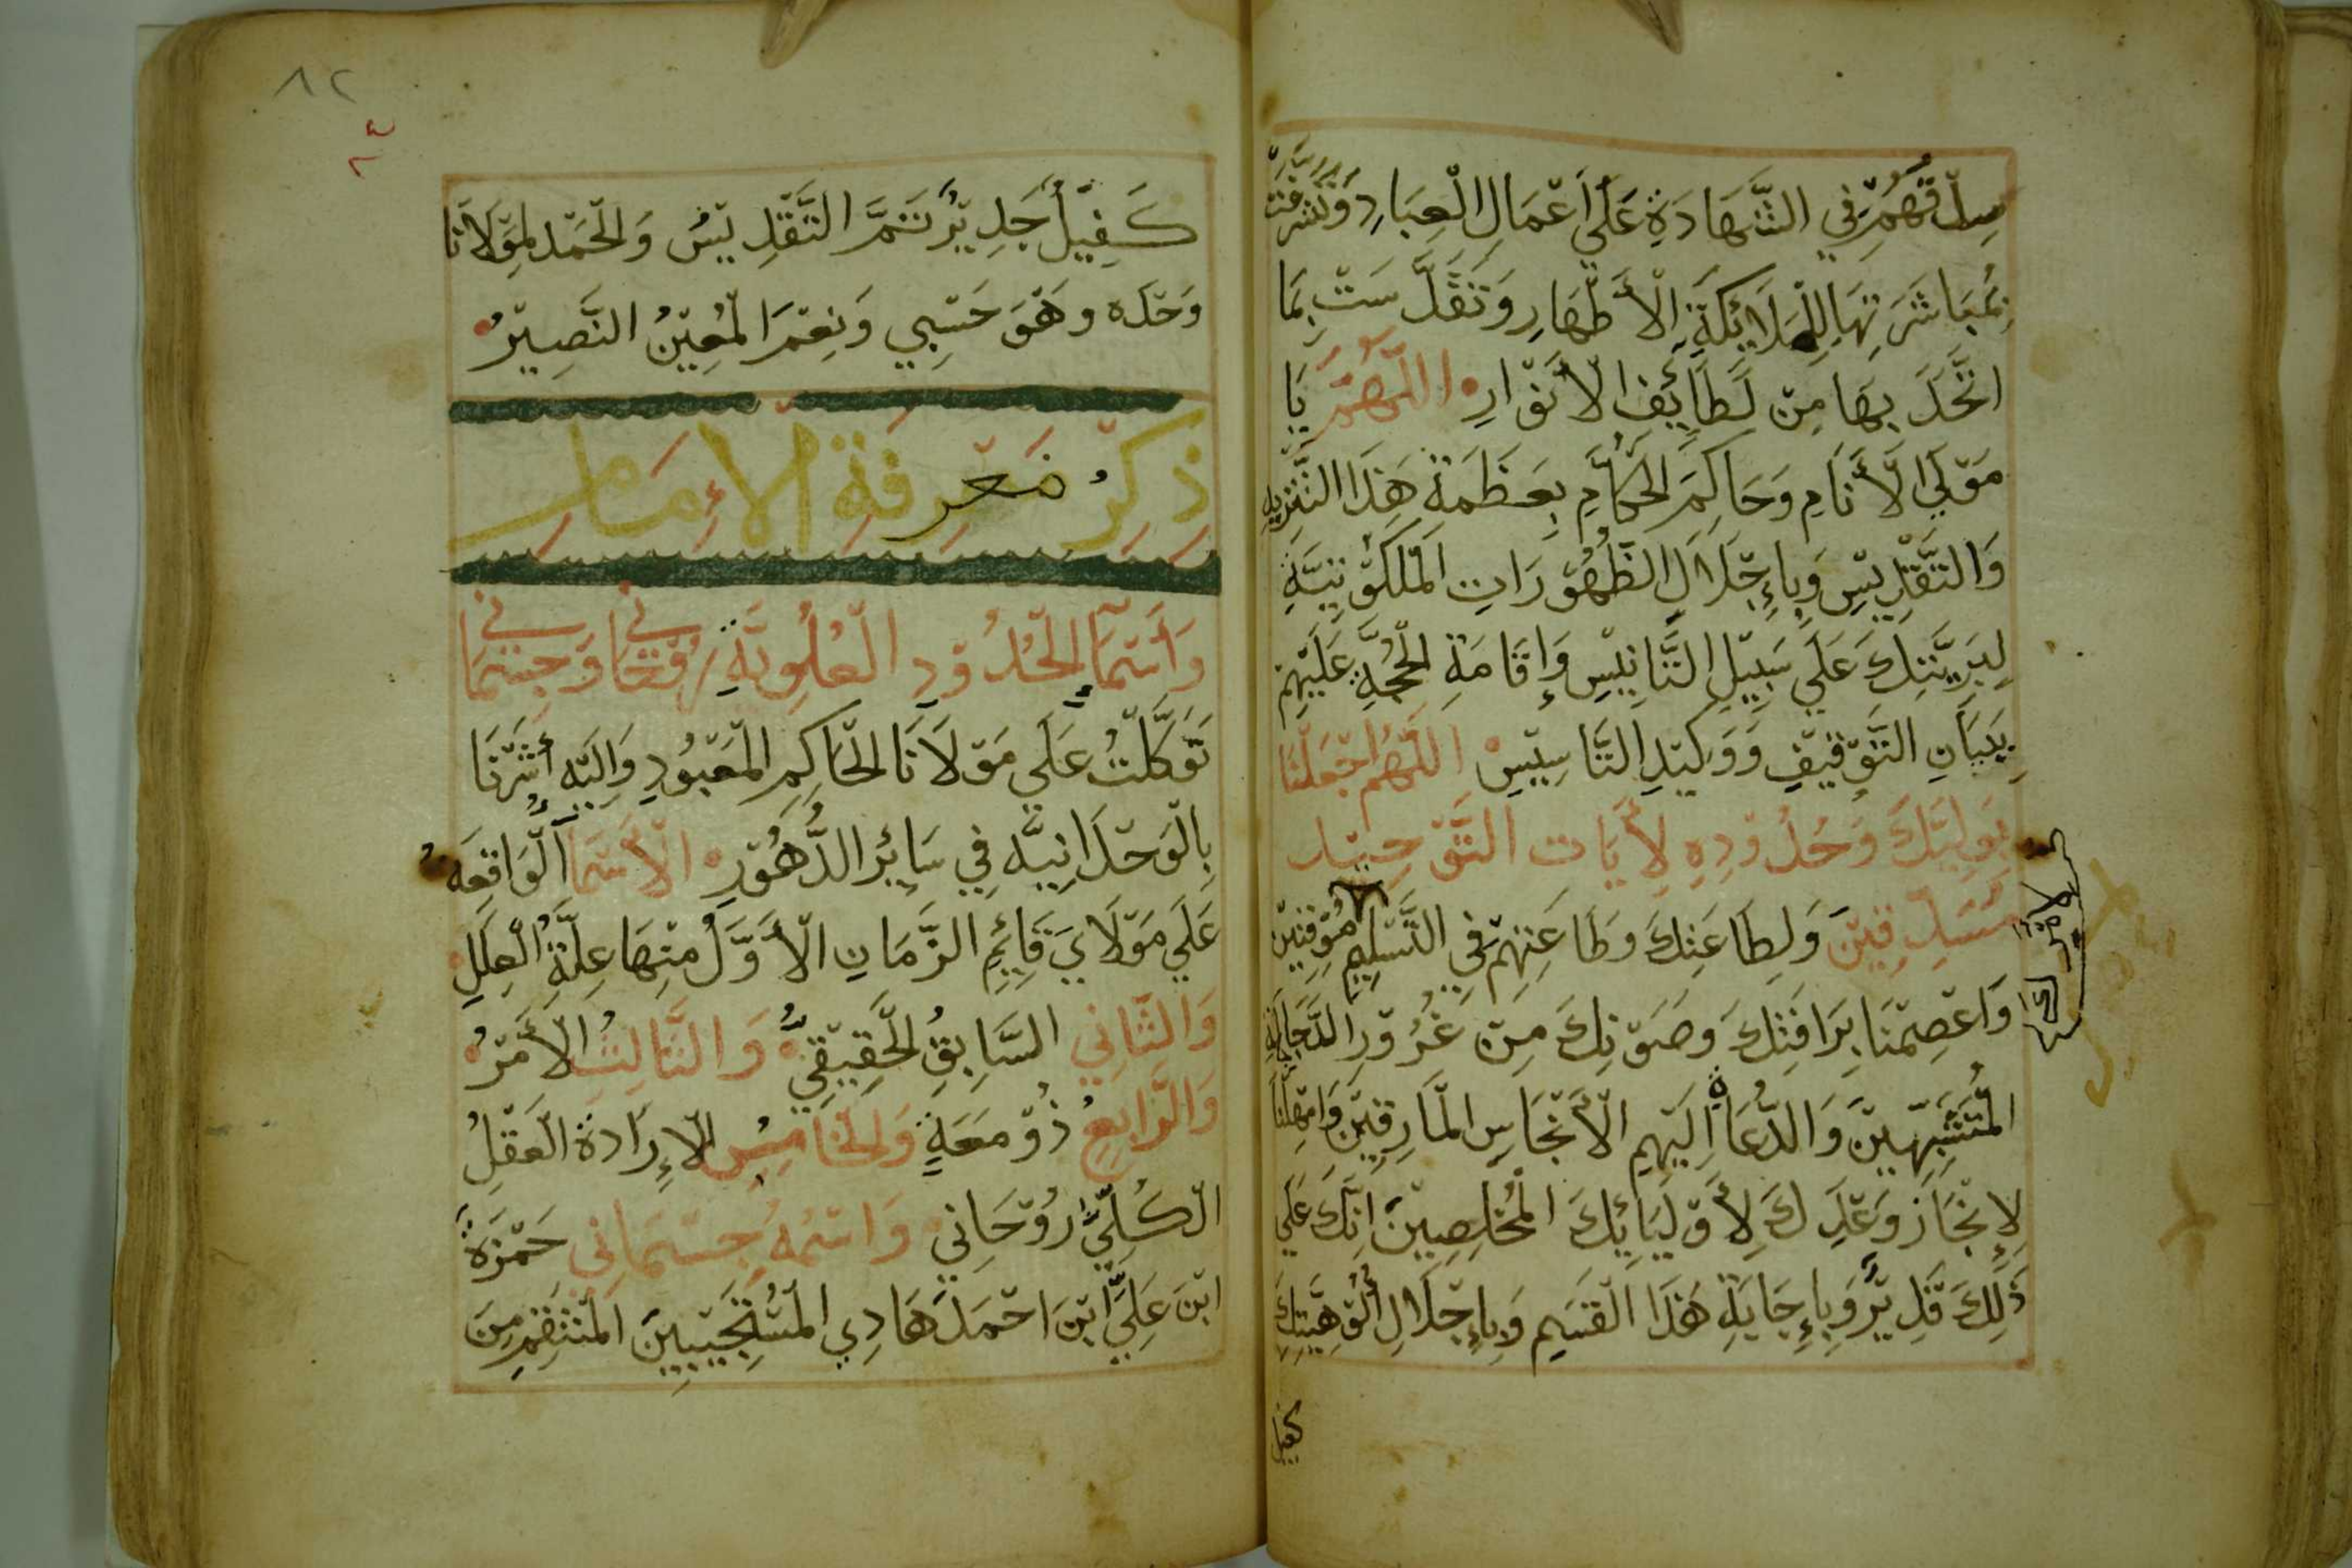 صِدْقَهُمْ فِي الشَّهَادَةِ عَلَى أَعْمَالِ الْعِبَادِ وَتَشَرَّفَتْ
بِمُبَاشَرَتِهَا لِلْمَلَائِكَةِ الْأَطْهَارِ وَتَقَدَّسَتْ بِمَا
اتَّحَدَ بِهَا مِنْ لَطَائِفِ الْأَنْوَارِ اللَّهُمَّ يَا
مَوْلَى الْأَنَامِ وَحَاكِمَ الْحُكَّامِ بِعَظَمَةِ هَذَا التَّنْزِيهِ
وَالتَّقْدِيسِ وَبِإِجْلَالِ الظُّهُورَاتِ الْمَلَكُوتِيَّةِ
لِبَرِيَّتِكَ عَلَى سَبِيلِ التَّانِيسِ وَإِقَامَةِ الْحُجَّةِ عَلَيْهِمْ
بِبَيَانِ التَّوْقِيفِ وَوَكِيدِ التَّاسِيسِ اللَّهُمَّ اجْعَلْنَا
بِوَلِيِّكَ وَحُدُودِهِ لِأَيَاتِ التَّوْحِيدِ
مُصَدِّقِينَ وَلِطَاعَتِكَ وَطَاعَتِهِمْ فِي التَّسْلِيمِ مُوقِنِينَ
وَاعْصِمْنَا بِرَافَتِكَ وَصَوْنِكَ مِنْ غُرُورِ الدَّجَاجِلَةِ
الْمُتَشَبِّهِينَ وَالدُّعَاةِ إِلَيْهِمِ الْأَنْجَاسِ الْمَارِقِينَ وَامْهِلْنَا
لِإِنْجَازِ وَعْدِكَ لِأَوْلِيَائِكَ الْمُخْلِصِينَ إِنَّكَ عَلَى
ذَلِكَ قَدِيرٌ وَبِإِجَابَةِ هَذَا الْقَسَمِ وَبِإِجْلَالِ أُلُوهِيَّتِكَ
كفيل
٨٢
كَفِيلٌ جَدِيرٌ تَمَّ التَّقْدِيسُ وَالْحَمْد لِمَوْلَانَا
وَحْدَه وهُوَ حَسْبِي وَنِعْمَ الْمُعِينُ النَّصِيرُ
ذِكْرُ مَعْرِفَةِ الْإِمَامِ
وَأَسْمَآ الْحُدُودِ الْعُلْوِيَّةِ رُوحَانِي وَجِسْمَانِي
تَوَكَّلْتُ عَلَى مَوْلَانَا الْحَاكِمِ الْمَعْبُودِ وَإِلَيْهِ أَشَرْنَا
بِالْوَحْدَانِيَّه فِي سَائِرِ الدُّهُورِ الْأَسْمَآ الْوَاقِعَه
عَلَى مَوْلَايَ قَائِمِ الزَّمَانِ الْأَوَّلُ مِنْهَا عِلَّةُ الْعِلَلِ
وَالثَّانِي السَّابِقُ الْحَقِيقِيُّ وَالثَّالِثُ الْأَمْرُ
وَالرَّابِعُ ذُو مَعَةٍ وَالْخَامِسُ الْإِرَادَةُ الْعَقْلُ
الْكُلِّيُّ رُوْحَانِي وَاسْمُهُ جِسْمَانِي حَمْزَةُ
ابْنَ عَلِيِّ ابْنَ احْمَدَ هَادِي الْمُسْتَجِيبِينَ الْمُنْتَقِمِ مِنَ